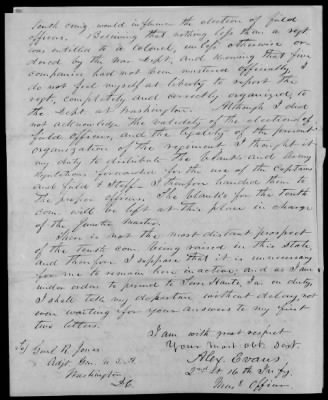 tenth comg. would influence the election of field
officers. Believing that nothing less than a regt.
was entitled to a colonel, unless otherwise or-
dered by the War Dept, and knowing that five
companies had not been mustered officially, I
do not feel myself at liberty to report the
regt, completely and correctly organized, to
the Dept at Washington. Although I did
not acknowledge the validity of the election of
field officers, and the legality of the present
organization of the regiment I thought it
my duty to distribute the blanks and Army
Regulations forwarded for the use of the Captains
and field & Staff. I therefore handed them to
the proper officers. The blanks for the tenth
com. will be left at this place in charge
of the Quarter Master.
There is not the most distant prospect
of the tenth com. being raised in this State,
and therefore I suppose that it is unnecessary
for me to remain here in action, and as I am
under orders to proceed to Terre Haute, Ia. on duty,
I shall take my departure without delay, not
even waiting for your answers to my first
two letters.
I am with most respect
Your most obt. Sert.
Alex. Evans,
2nd Lt 16th Infy.
Mus. Officer
To) Genl R. Jones
Adjt. Gen. U. S. A.
Washington
D.C.